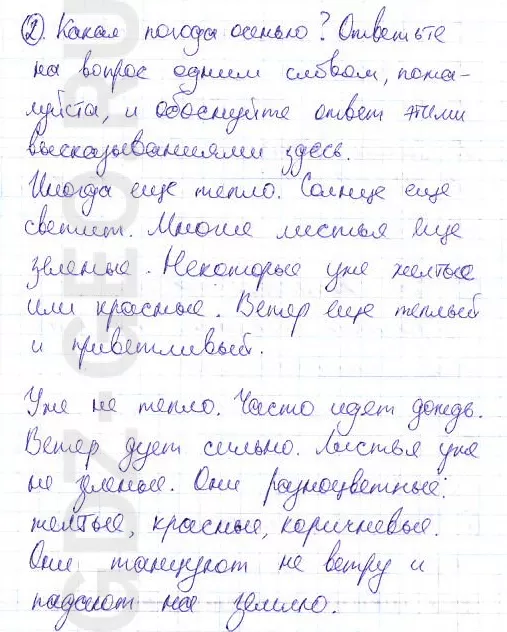 2. Какая погода осенью? Ответьте
на вопрос одним словом, пожа-
луйста, и обоснуйте ответ этими
высказываниями здесь.
Иногда еще тепло. Солнце еще
светит. Многие листья еще
зеленые. Некоторые уже желтые
или красные. Ветер еще теплый
и приветливый.
Уже не тепло. Часто идет дождь.
Ветер дует сильно. Листья уже
не зеленые. Они разноцветные:
желтые, красные, коричневые.
Они танцуют не ветру и
падают на землю.
GDZ-GEO.RU